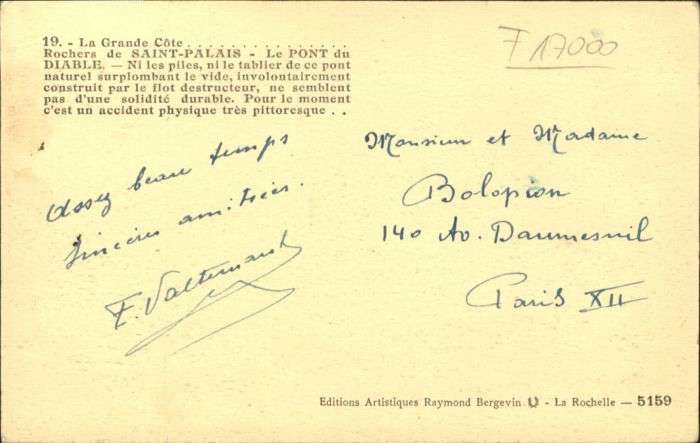 19. - La Grande Côte
Rochers de SAINT-PALAIS - Le PONT du
DIABLE. — Ni les piles, ni le tablier de ce pont
naturel surplombant le vide, involontairement
construit par le flot destructeur, ne semblent
pas d'une solidité durable. Pour le moment
c'est un accident physique très pittoresque . .
F 17000
Assez beau temps
Sincères amitiées.
Monsieur et Madame
Bolopion
140 Av. Daumesnil
Paris XII
Editions Artistiques Raymond Bergevin - La Rochelle — 5159